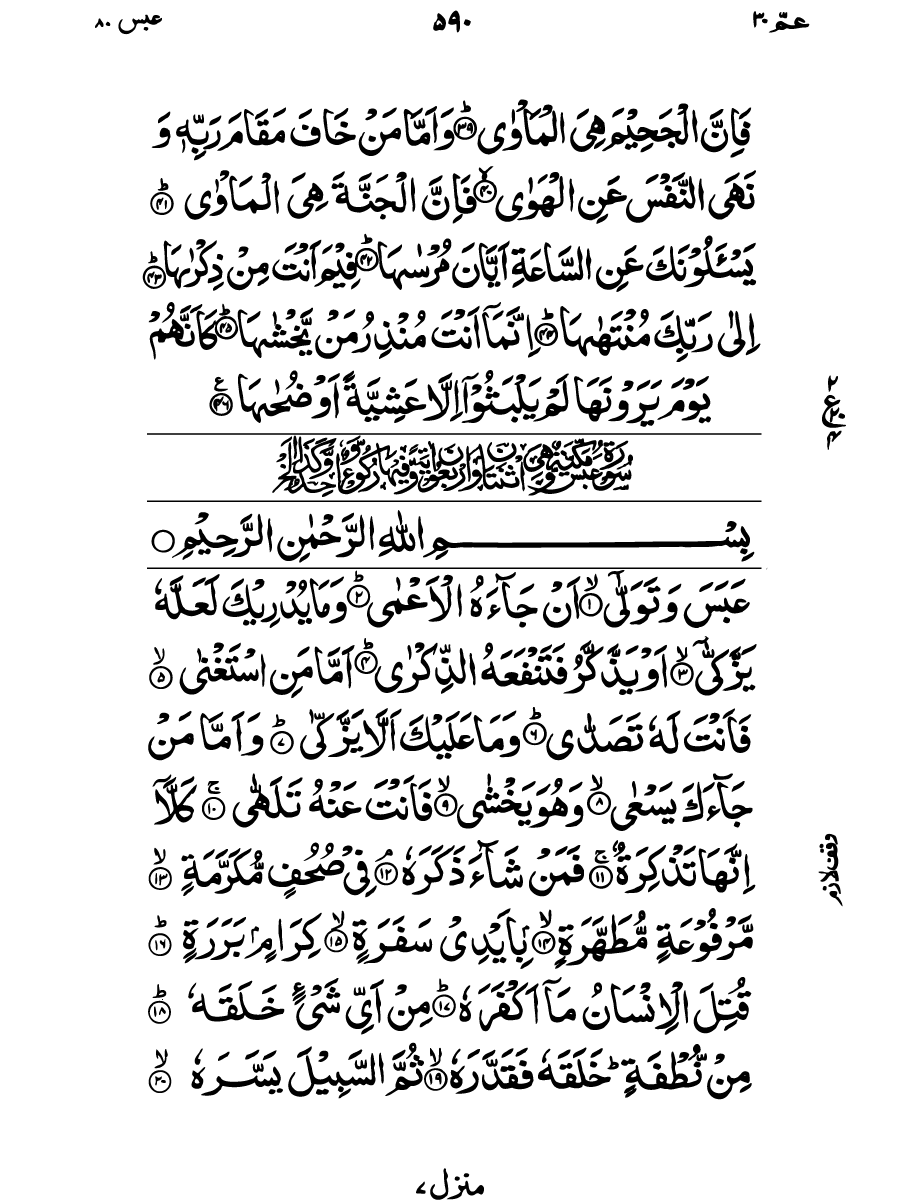 عمّ ۳۰ ۵۹۰ عبس ۸۰
فَاِنَّ الْجَحِيْمَ هِىَ الْمَاْوٰى ؕ‏﴿۳۹﴾ وَاَمَّا مَنْ خَافَ مَقَامَ رَبِّهٖ وَ
نَهَى النَّفْسَ عَنِ الْهَوٰىۙ‏﴿۴۰﴾ فَاِنَّ الْجَنَّةَ هِىَ الْمَاْوٰى ﴿۴۱﴾
يَسْـَٔلُوْنَكَ عَنِ السَّاعَةِ اَيَّانَ مُرْسٰٮهَا ؕ‏﴿۴۲﴾ فِيْمَ اَنْتَ مِنْ ذِكْرٰٮهَا ؕ‏﴿۴۳﴾
اِلٰى رَبِّكَ مُنْتَهٰٮهَا ؕ‏﴿۴۴﴾ اِنَّمَاۤ اَنْتَ مُنْذِرُ مَنْ يَّخْشٰٮهَا ؕ‏﴿۴۵﴾ كَاَنَّهُمْ
يَوْمَ يَرَوْنَهَا لَمْ يَلْبَثُوْۤا اِلَّا عَشِيَّةً اَوْ ضُحٰٮهَا ﴿۴۶﴾
سُوْرَةُ عَبَسَ مَكِّيَّةٌ وَّهِىَ اثْنَتَانِ وَاَرْبَعُوْنَ اٰيَةً وَّفِيْهَا رُكُوْعٌ وَّاحِدٌ
بِسْمِ اللهِ الرَّحْمٰنِ الرَّحِيْمِ ○
عَبَسَ وَتَوَلّٰٓىۙ‏﴿۱﴾ اَنْ جَآءَهُ الْاَعْمٰىؕ‏﴿۲﴾ وَمَا يُدْرِيْكَ لَعَلَّهٗ
يَزَّكّٰٓىۙ‏﴿۳﴾ اَوْ يَذَّكَّرُ فَتَنْفَعَهُ الذِّكْرٰىؕ‏﴿۴﴾ اَمَّا مَنِ اسْتَغْنٰىۙ‏﴿۵﴾
فَاَنْتَ لَهٗ تَصَدّٰىؕ‏﴿۶﴾ وَمَا عَلَيْكَ اَلَّا يَزَّكّٰىؕ‏﴿۷﴾ وَاَمَّا مَنْ
جَآءَكَ يَسْعٰىۙ‏﴿۸﴾ وَهُوَ يَخْشٰىۙ‏﴿۹﴾ فَاَنْتَ عَنْهُ تَلَهّٰىۚ‏﴿۱۰﴾ كَلَّاۤ
اِنَّهَا تَذْكِرَةٌۚ‏﴿۱۱﴾ فَمَنْ شَآءَ ذَكَرَهٗۘ‏﴿۱۲﴾ فِىْ صُحُفٍ مُّكَرَّمَةٍۙ‏﴿۱۳﴾
وقف لازم
مَّرْفُوْعَةٍ مُّطَهَّرَةٍۙ‏﴿۱۴﴾ بِاَيْدِىْ سَفَرَةٍۙ‏﴿۱۵﴾ كِرَامٍۭ بَرَرَةٍؕ‏﴿۱۶﴾
قُتِلَ الْاِنْسَانُ مَاۤ اَكْفَرَهٗؕ‏﴿۱۷﴾ مِنْ اَىِّ شَىْءٍ خَلَقَهٗؕ‏﴿۱۸﴾
مِنْ نُّطْفَةٍؕ خَلَقَهٗ فَقَدَّرَهٗۙ‏﴿۱۹﴾ ثُمَّ السَّبِيْلَ يَسَّرَهٗۙ‏﴿۲۰﴾
منزل ۷